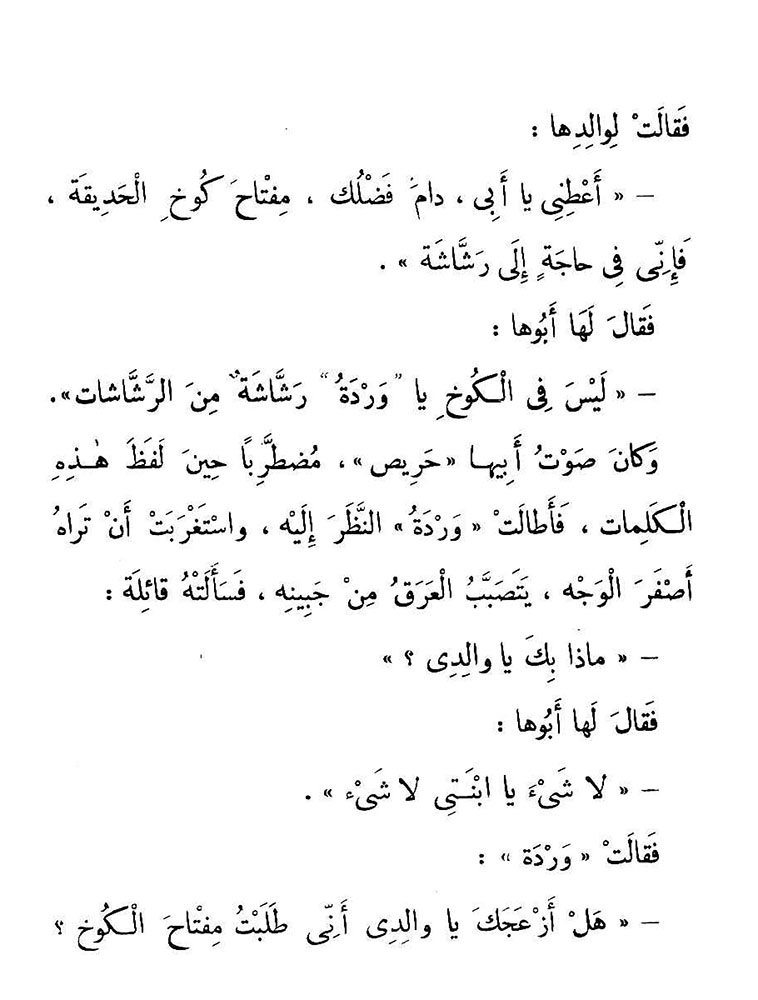 فَقالَتْ لِوالِدِها :
— « أَعْطِنِى يا أَبِى ، دامَ فَضْلُك ، مِفْتاحَ كُوخِ الْحَدِيقَة ،
فَإِنِّى فِى حاجَةٍ إِلَى رَشَّاشَة » .
فَقالَ لَهَا أَبُوها :
— « لَيْسَ فِى الْـكُوخِ يا ”وَرْدَةُ“ رَشَّاشَةٌ مِنَ الرَّشَّاشات».
وَكانَ صَوْتُ أَبِيهـا «حَرِيص» ، مُضطَرِّباً حِينَ لَفَظَ هٰـذِهِ
الْـكَلِمات ، فَأَطالَتْ « وَرْدَةُ » النَّظَرَ إِلَيْه ، واسْتَغْرَبَتْ أَنْ تَراهُ
أَصْفَرَ الْوَجْه ، يَتَصَبَّبُ الْعَرَقُ مِنْ جَبِينِه ، فَسَأَلَتْهُ قائِلَة :
— « ماذا بِكَ يا والِدِى ؟ »
فَقالَ لَها أَبُوها :
— « لا شَىْءَ يا ابْنَـتِى لا شَىْء » .
فَقالَتْ « وَرْدَة » :
— « هَلْ أَزْعَجَكَ يا والِدِى أَنِّى طَلَبْتُ مِفْتاحَ الْـكُوخ ؟